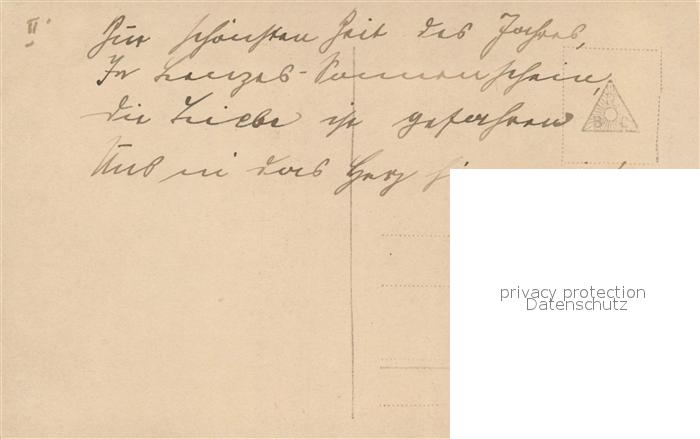 II.
Zur schönsten Zeit des Jahres,
In Lenzes-Sonnenschein,
Die Liebe ist gefahren
Uns in das Herz
B C
privacy protection
Datenschutz